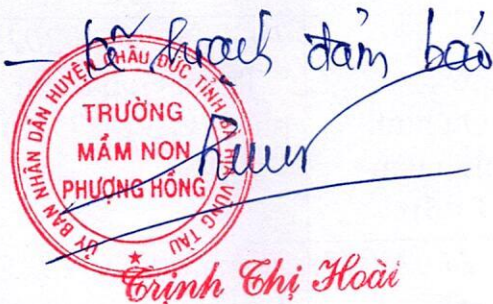 – kế hoạch đảm bảo
ỦY BAN NHÂN DÂN HUYỆN CHÂU ĐỨC TỈNH BÀ RỊA VŨNG TÀU
TRƯỜNG
MẦM NON
PHƯỢNG HỒNG
Trịnh Thị Hoài